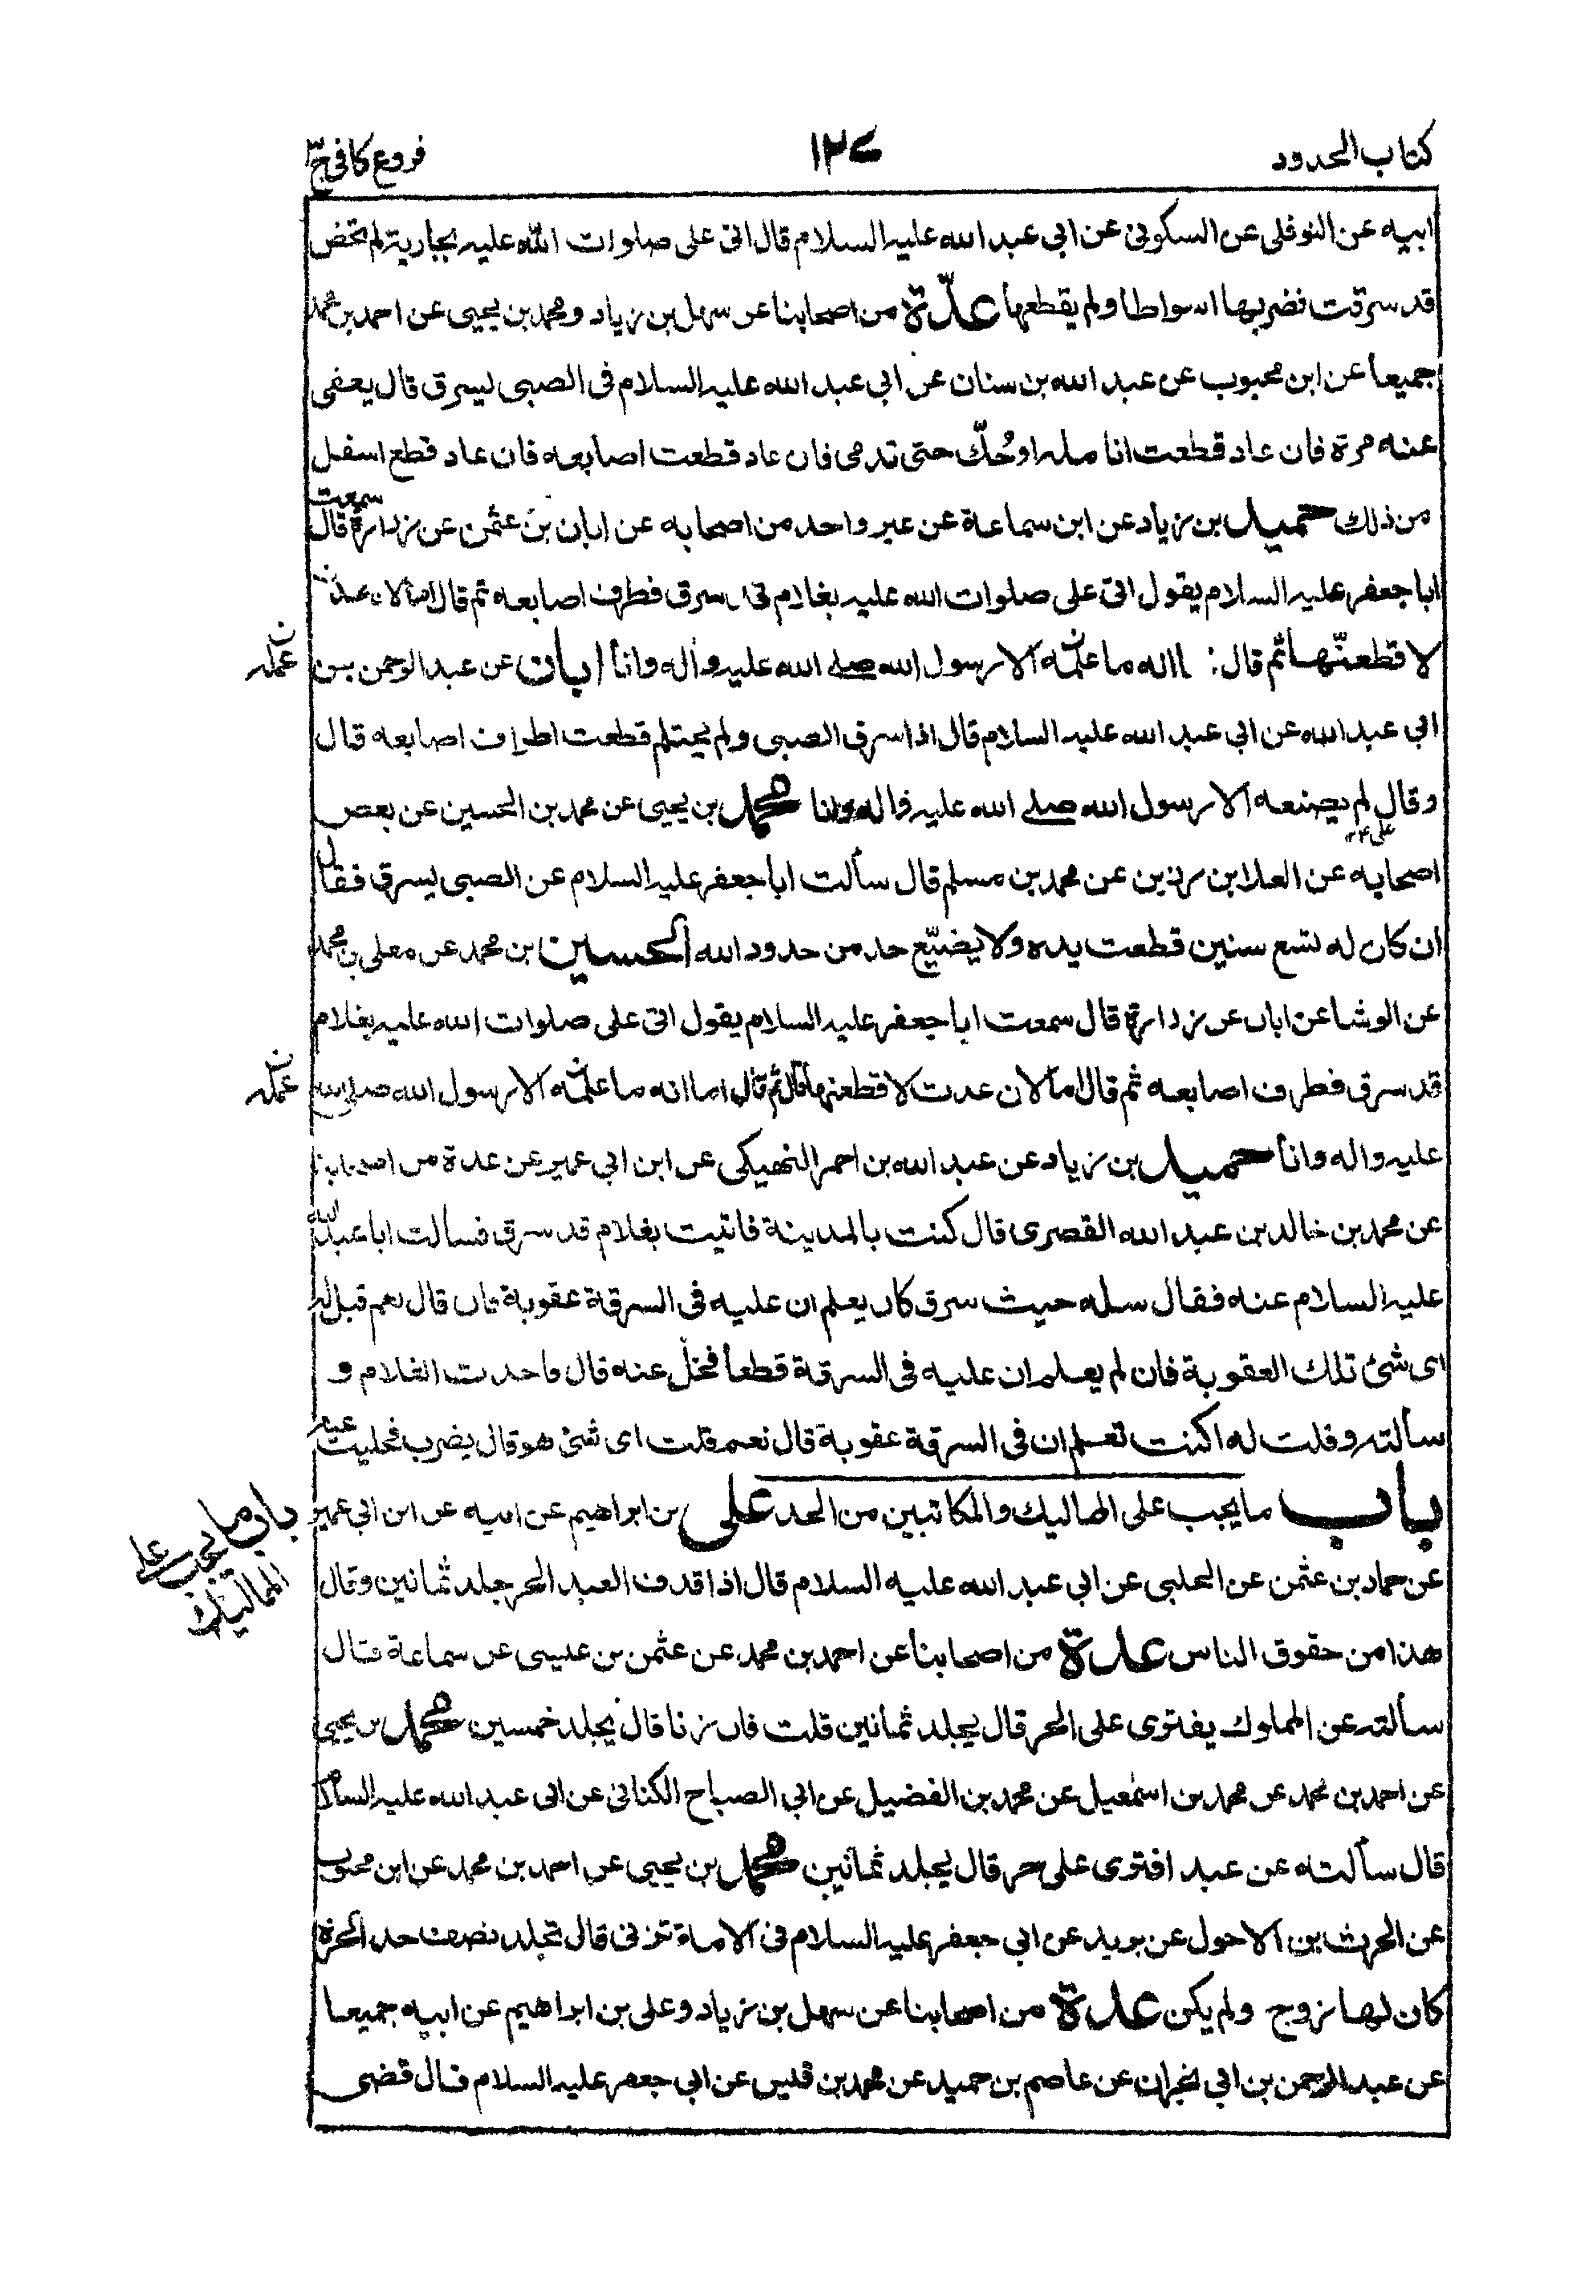 كتاب الحدود ١٢٤ فروع كافي ج٣
ابيه عن النوفلى عن السكونى عن ابي عبد الله عليه السلام قال اتى على صلوات الله عليه بجارية لم تحض
قد سرقت فضربها اسواطا ولم يقطعها عدّة من اصحابنا عن سهل بن زياد ومحمد بن يحيى عن احمد بن محمد
جميعا عن ابن محبوب عن عبد الله بن سنان عن ابي عبد الله عليه السلام فى الصبى يسرق قال يعفى
عنه مرة فان عاد قطعت انامله او حُكّ حتى تدمى فان عاد قطعت اصابعه فان عاد قطع اسفل
من ذلك حميد بن زياد عن ابن سماعة عن غير واحد من اصحابه عن ابان بن عثمن عن زرارة قال سمعت
ابا جعفر عليه السلام يقول اتى على صلوات الله عليه بغلام سرق فطرف اصابعه ثم قال اما لان عدت
لاقطعنّها ثم قال: اما انه ما عمله الا رسول الله صلى الله عليه واله وانا ابان عن عبد الرحمن بن
عمله ن
ابي عبد الله عن ابي عبد الله عليه السلام قال اذا سرق الصبى ولم يحتلم قطعت اطراف اصابعه قال
وقال لم يصنعه الا رسول الله صلى الله عليه واله وانا محمد بن يحيى عن محمد بن الحسين عن بعض
اصحابه عن العلا بن رزين عن محمد بن مسلم قال سألت ابا جعفر عليه السلام عن الصبى يسرق فقال
ان كان له تسع سنين قطعت يده ولا يضيّع حد من حدود الله الحسين بن محمد عن معلى بن محمد
عن الوشا عن ابان عن زرارة قال سمعت ابا جعفر عليه السلام يقول اتى على صلوات الله عليه بغلام
قد سرق فطرف اصابعه ثم قال اما لان عدت لاقطعنها ثم قال اما انه ما عمله الا رسول الله صلى الله
عمله ن
عليه واله وانا حميد بن زياد عن عبد الله بن احمد النهيكى عن ابن ابي عمير عن عدة من اصحابنا
عن محمد بن خالد بن عبد الله القصرى قال كنت بالمدينة فاتيت بغلام قد سرق فسألت ابا عبد الله
عليه السلام عنه فقال سله حيث سرق كان يعلم ان عليه فى السرقة عقوبة فان قال نعم قيل له
اى شئ تلك العقوبة فان لم يعلم ان عليه فى السرقة قطعا فخلّ عنه قال فاخذت الغلام و
سألته وقلت له اكنت تعلم ان فى السرقة عقوبة قال نعم قلت اى شئ هو قال يضرب فخليت عنه
باب ما يجب على المماليك والمكاتبين من الحد على بن ابراهيم عن ابيه عن ابن ابي عمير
باب ما يجب على المماليك
عن حماد بن عثمن عن الحلبى عن ابي عبد الله عليه السلام قال اذا قذف العبد الحر جلد ثمانين وقال
هذا من حقوق الناس عدة من اصحابنا عن احمد بن محمد عن عثمن بن عيسى عن سماعة قال
سألته عن المملوك يفترى على الحر قال يجلد ثمانين قلت فان زنا قال يجلد خمسين محمد بن يحيى
عن احمد بن محمد عن محمد بن اسمعيل عن محمد بن الفضيل عن ابي الصباح الكنانى عن ابي عبد الله عليه السلام
قال سألته عن عبد افترى على حر قال يجلد ثمانين محمد بن يحيى عن احمد بن محمد عن ابن محبوب
عن الحرث بن الاحول عن بريد عن ابي جعفر عليه السلام فى الامة تزنى قال تجلد نصف حد الحرة
كان لها زوج ولم يكن عدة من اصحابنا عن سهل بن زياد وعلى بن ابراهيم عن ابيه جميعا
عن عبد الرحمن بن ابي نجران عن عاصم بن حميد عن محمد بن قيس عن ابي جعفر عليه السلام قال قضى